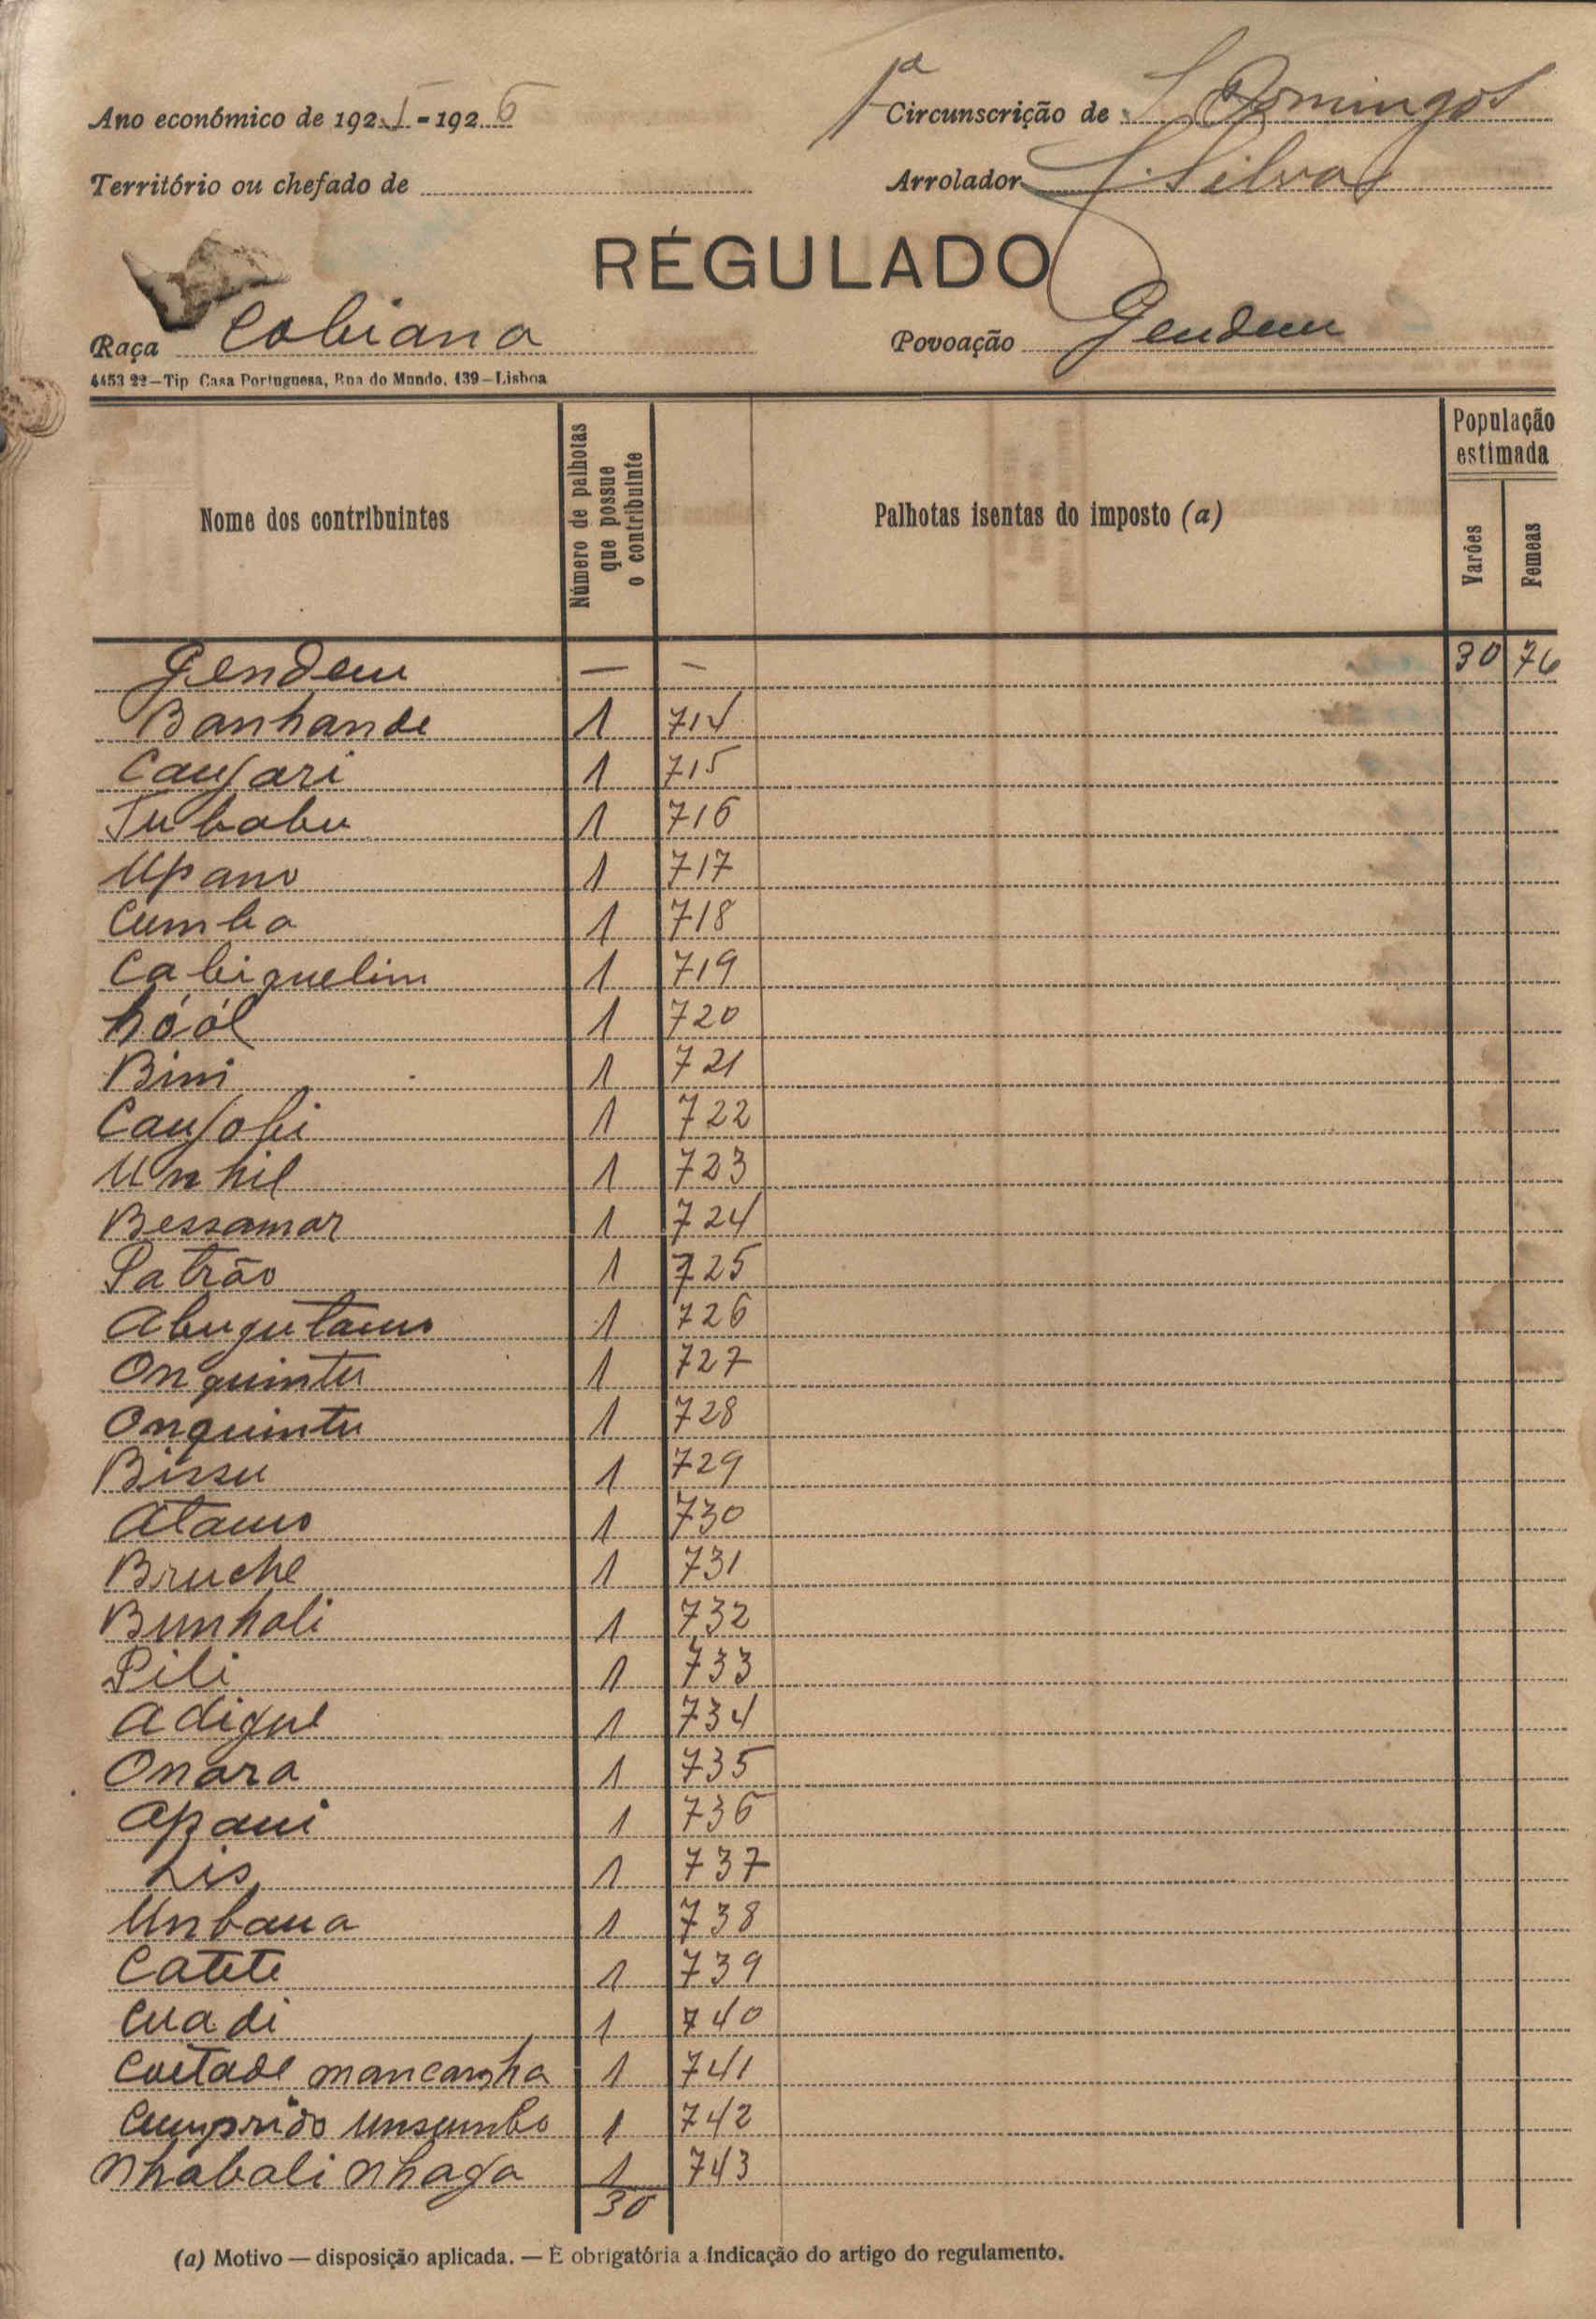 1ª
Ano económico de 1925-1926 Circunscrição de S. Domingos
Território ou chefado de Arrolador Silva
RÉGULADO
Raça Cobiana Povoação Gendem
4453 22—Tip Casa Portuguesa, Rua do Mundo, 139—Lisboa
Nome dos contribuintes Número de palhotas que possue o contribuinte Palhotas isentas do imposto (a) População estimada Varões Femeas
Gendem — — 30 76
Banhande 1 714
Caujari 1 715
Jubabu 1 716
Upano 1 717
Cumba 1 718
Cabiquelim 1 719
hóól 1 720
Bini 1 721
Caujobi 1 722
Unhil 1 723
Bessamar 1 724
Patrão 1 725
Abugutamo 1 726
Onquintu 1 727
Onquintu 1 728
Bissu 1 729
Atamo 1 730
Bruche 1 731
Bunhali 1 732
Pili 1 733
Adigue 1 734
Onara 1 735
Apaui 1 736
Lis 1 737
Unbana 1 738
Catete 1 739
Cuadi 1 740
Coitade mancanha 1 741
Cumprido Unsumbo 1 742
Nhabali Nhaga 1 743
30
(a) Motivo — disposição aplicada. — É obrigatória a indicação do artigo do regulamento.